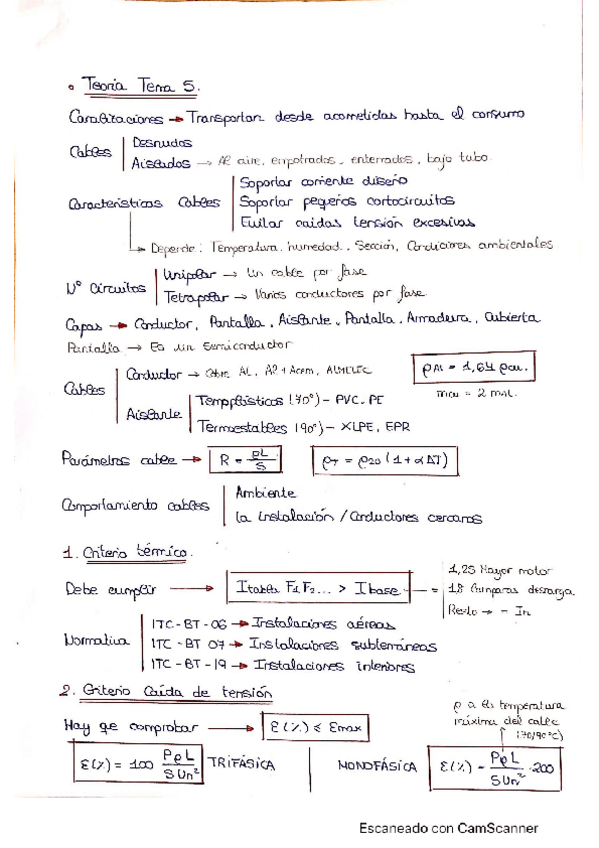 • Teoría Tema 5.
Canalizaciones → Transportan desde acometidas hasta el consumo
Cables | Desnudos
Aislados → Al aire, empotrados, enterrados, bajo tubo.
Características Cables | Soportar corriente diseño
Soportar pequeños cortocircuitos
Evitar caídas tensión excesivas
→ Depende: Temperatura, humedad, Sección, Condiciones ambientales
Nº Circuitos | Unipolar → Un cable por fase
Tetrapolar → Varios conductores por fase
Capas → Conductor, Pantalla, Aislante, Pantalla, Armadura, Cubierta
Pantalla → Es un Semiconductor
Cables | Conductor → Cobre, AL, Al + Acero, ALMELEC
Aislante | Termoplásticos (70º) - PVC, PE
Termoestables (90º) - XLPE, EPR
ρAl = 1,64 ρcu.
mcu = 2 mAL.
Parámetros cable → R = ρL/S
ρT = ρ20 (1 + α ΔT)
Comportamiento cables | Ambiente
la instalación / Conductores cercanos
1. Criterio térmico.
Debe cumplir → Itabla F1 F2 ... > Ibase
= | 1,25 Mayor motor
1,8 lámparas descarga
Resto → - In
Normativa | ITC-BT-06 → Instalaciones aéreas
ITC-BT 07 → Instalaciones subterráneas
ITC-BT-19 → Instalaciones interiores
2. Criterio Caída de tensión
Hay qe comprobar → ε(%) ≤ εmax
ρ a la temperatura
máxima del cable
(70/90ºC)
ε(%) = 100 PρL/SUn² TRIFÁSICA | MONOFÁSICA ε(%) = PρL/SUn² · 200
Escaneado con CamScanner